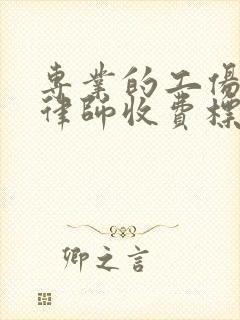 専業的工傷
律師收費標
卿之言